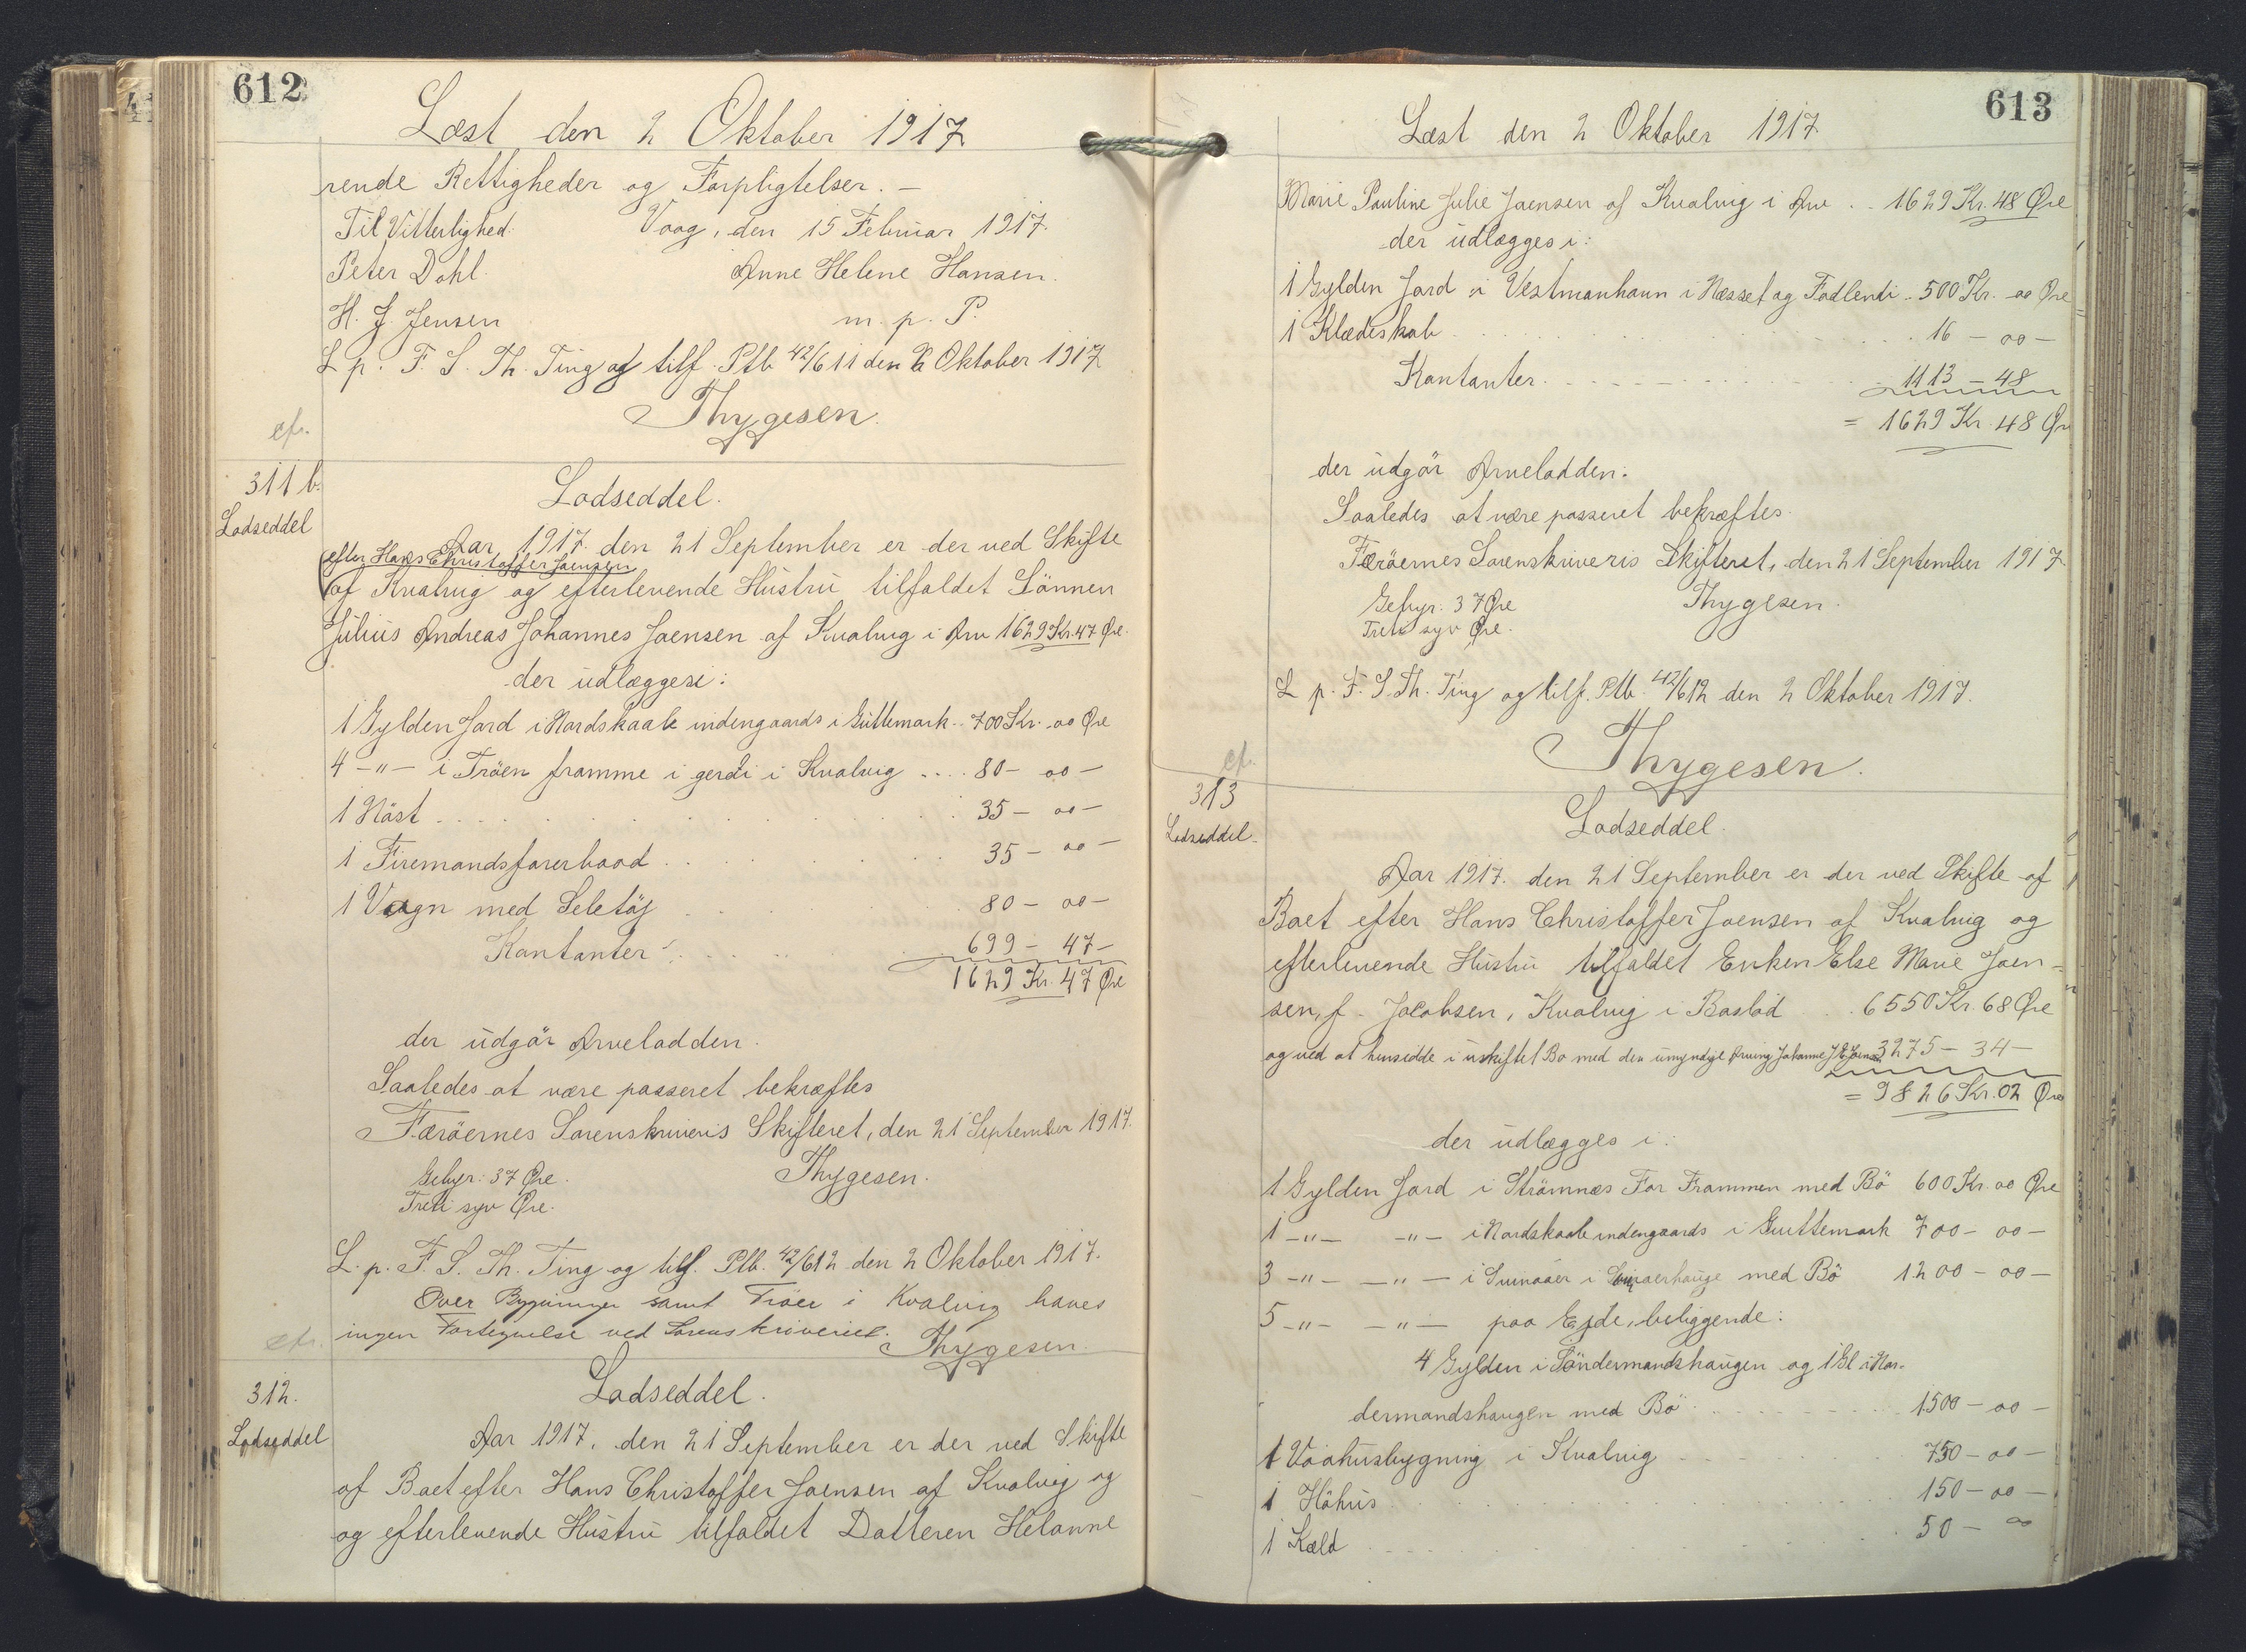 612
Læst den 2 Oktober 1917
rende Rettigheder og Forpligtelser. —
Til Vitterlighed: Vaag, den 15 Februar 1917.
Peter Dahl. Anne Helene Hansen.
H. J. Jensen m. p. P.
L. p. F. S. Th. Ting og tilf. Ptb 42/611 den 2 Oktober 1917
Thygesen.
cfr.
311 b.
Lodseddel
Lodseddel.
Aar 1917. den 21 September er der ved Skifte
efter Hans Christoffer Joensen
af Kvalvig og efterlevende Hustru tilfaldet Sönnen
Julius Andreas Johannes Joensen af Kvalvig i Arv 1629 Kr. 47 Øre.
der udlægges i:
1 Gylden Jord i Nordskaale indengaards i Guttemark .. 700 Kr. 00 Øre
4 —"— i Tröen framme i gerdi i Kvalvig .... 80 — 00 —
1 Nöst . . . 35 — 00 —
1 Firemandsfarerbaad . . . 35 — 00 —
1 Vogn med Seletöj . . . 80 — 00 —
Kontanter . . . 699 — 47 —
1629 Kr. 47 Øre
der udgör Arvelodden.
Saaledes at være passeret bekræftes
Færöernes Sorenskriveris Skifteret, den 21 September 1917.
Gebyr: 37 Øre. Thygesen.
Treti syv Øre.
L. p. F. S. Th. Ting og tilf. Ptb. 42/612 den 2 Oktober 1917.
Over Bygninger samt Tröer i Kvalvig haves
ingen Fortegnelse ved Sorenskriveriet. Thygesen.
cfr.
312.
Lodseddel
Lodseddel.
Aar 1917, den 21 September er der ved Skifte
af Boet efter Hans Christoffer Joensen af Kvalvig og
og efterlevende Hustru tilfaldet Datteren Helanne
613
Læst den 2 Oktober 1917.
Marie Pauline Julie Joensen af Kvalvig i Arv .. 1629 Kr. 48 Øre
der udlægges i:
1 Gylden Jord i Vestmanhavn i Næsset og Fodlendi .. 500 Kr. 00 Øre
1 Klædeskab . . . 16 — 00 —
Kontanter . . . 1113 — 48
= 1629 Kr. 48 Øre
der udgör Arvelodden.
Saaledes at være passeret bekræftes.
Færöernes Sorenskriveris Skifteret, den 21 September 1917.
Gebyr: 37 Øre Thygesen.
Treti syv Øre.
L. p. F. S. Th. Ting og tilf. Ptb. 42/612 den 2 Oktober 1917.
Thygesen.
cfr.
313
Lodseddel.
Lodseddel.
Aar 1917. den 21 September er der ved Skifte af
Boet efter Hans Christoffer Joensen af Kvalvig og
efterlevende Hustru tilfaldet Enken Else Marie Joen-
sen, f. Jacobsen, Kvalvig i Boslod .. 6550 Kr. 68 Øre
og ved at hensidde i uskiftet Bo med den umyndige Arving Johanne J. E. Joensen 3275 — 34 —
= 9826 Kr. 02 Øre
der udlægges i:
1 Gylden Jord i Strömnæs For Frammen med Bö 600 Kr. 00 Øre
1 —"— —"— i Nordskaale indengaards i Guttemark 700 — 00 —
3 —"— —"— i Suinaaer i Suinaerhauge med Bö 1200 — 00 —
5 —"— —"— paa Ejde, beliggende:
4 Gylden i Söndermandshaugen og 1 Gl. i Nor-
dermandshaugen med Bö . . . 1500 — 00 —
1 Vaahusbygning i Kvalvig . . . 750 — 00 —
1 Höhus . . . 150 — 00 —
1 Kæld . . . 50 — 00